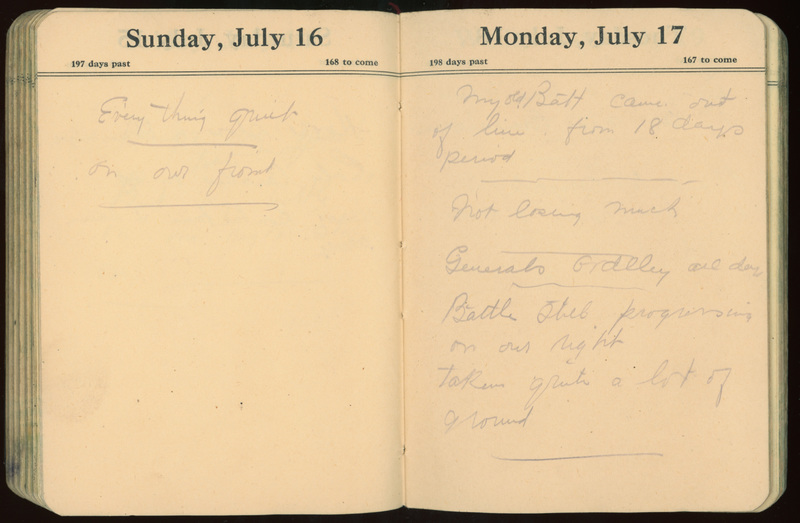 Sunday, July 16
197 days past 168 to come
Every thing quiet
on our front
Monday, July 17
198 days past 167 to come
My old Batt came out
of line from 18 days
period
Not losing much
Generals Ordlley all day
Battle still progressing
on our right
taken quite a lot of
ground